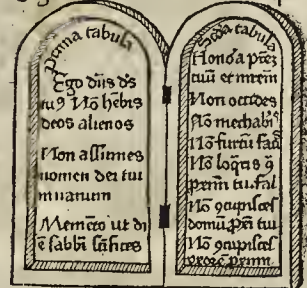 Prima tabula
Ego dñs ds̄
tuꝰ Nō hēbis
deos alienos
Non assumes
nomen dei tui
in uanum
Memēto ut di
ē sabbī sc̄ifices
Scd̄a tabula
Honora pr̄ez
tuū et mr̄em
Non occides
Nō mechabis
Nō furtū facies
Nō loq̄ris ꝯ
prox̄m tuū fal
Nō ꝯcupisces
domū prox̄i tui
Nō ꝯcupisces
vxorē prox̄mi